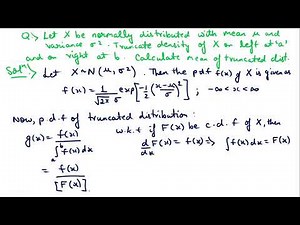 Q:) Let X be normally distributed with mean μ and
variance σ². Truncate density of X on left at 'a'
and on right at b. Calculate mean of truncated dist.
Solⁿ) Let X ~ N(μ, σ²). Then the pdf f(x) of X is given as
f(x) = 1/(√2π σ) exp[-1/2 (x-μ/σ)²] ; -∞ < x < ∞
Now, p.d.f of truncated distribution:
g(x) = f(x) / ∫ᵇₐ f(x) dx
w.k.t if F(x) be c.d.f of X, then
d/dx F(x) = f(x) ⇒ ∫f(x)dx = F(x)
= f(x) / [F(x)]